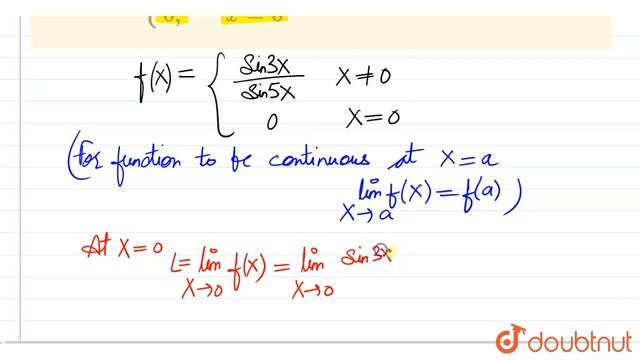 0, x = 0
f(x) = { sin3x / sin5x x ≠ 0
0 x = 0
(For function to be continuous at x = a
lim x→a f(x) = f(a) )
At x = 0 L = lim x→0 f(x) = lim x→0 sin 3x
doubtnut